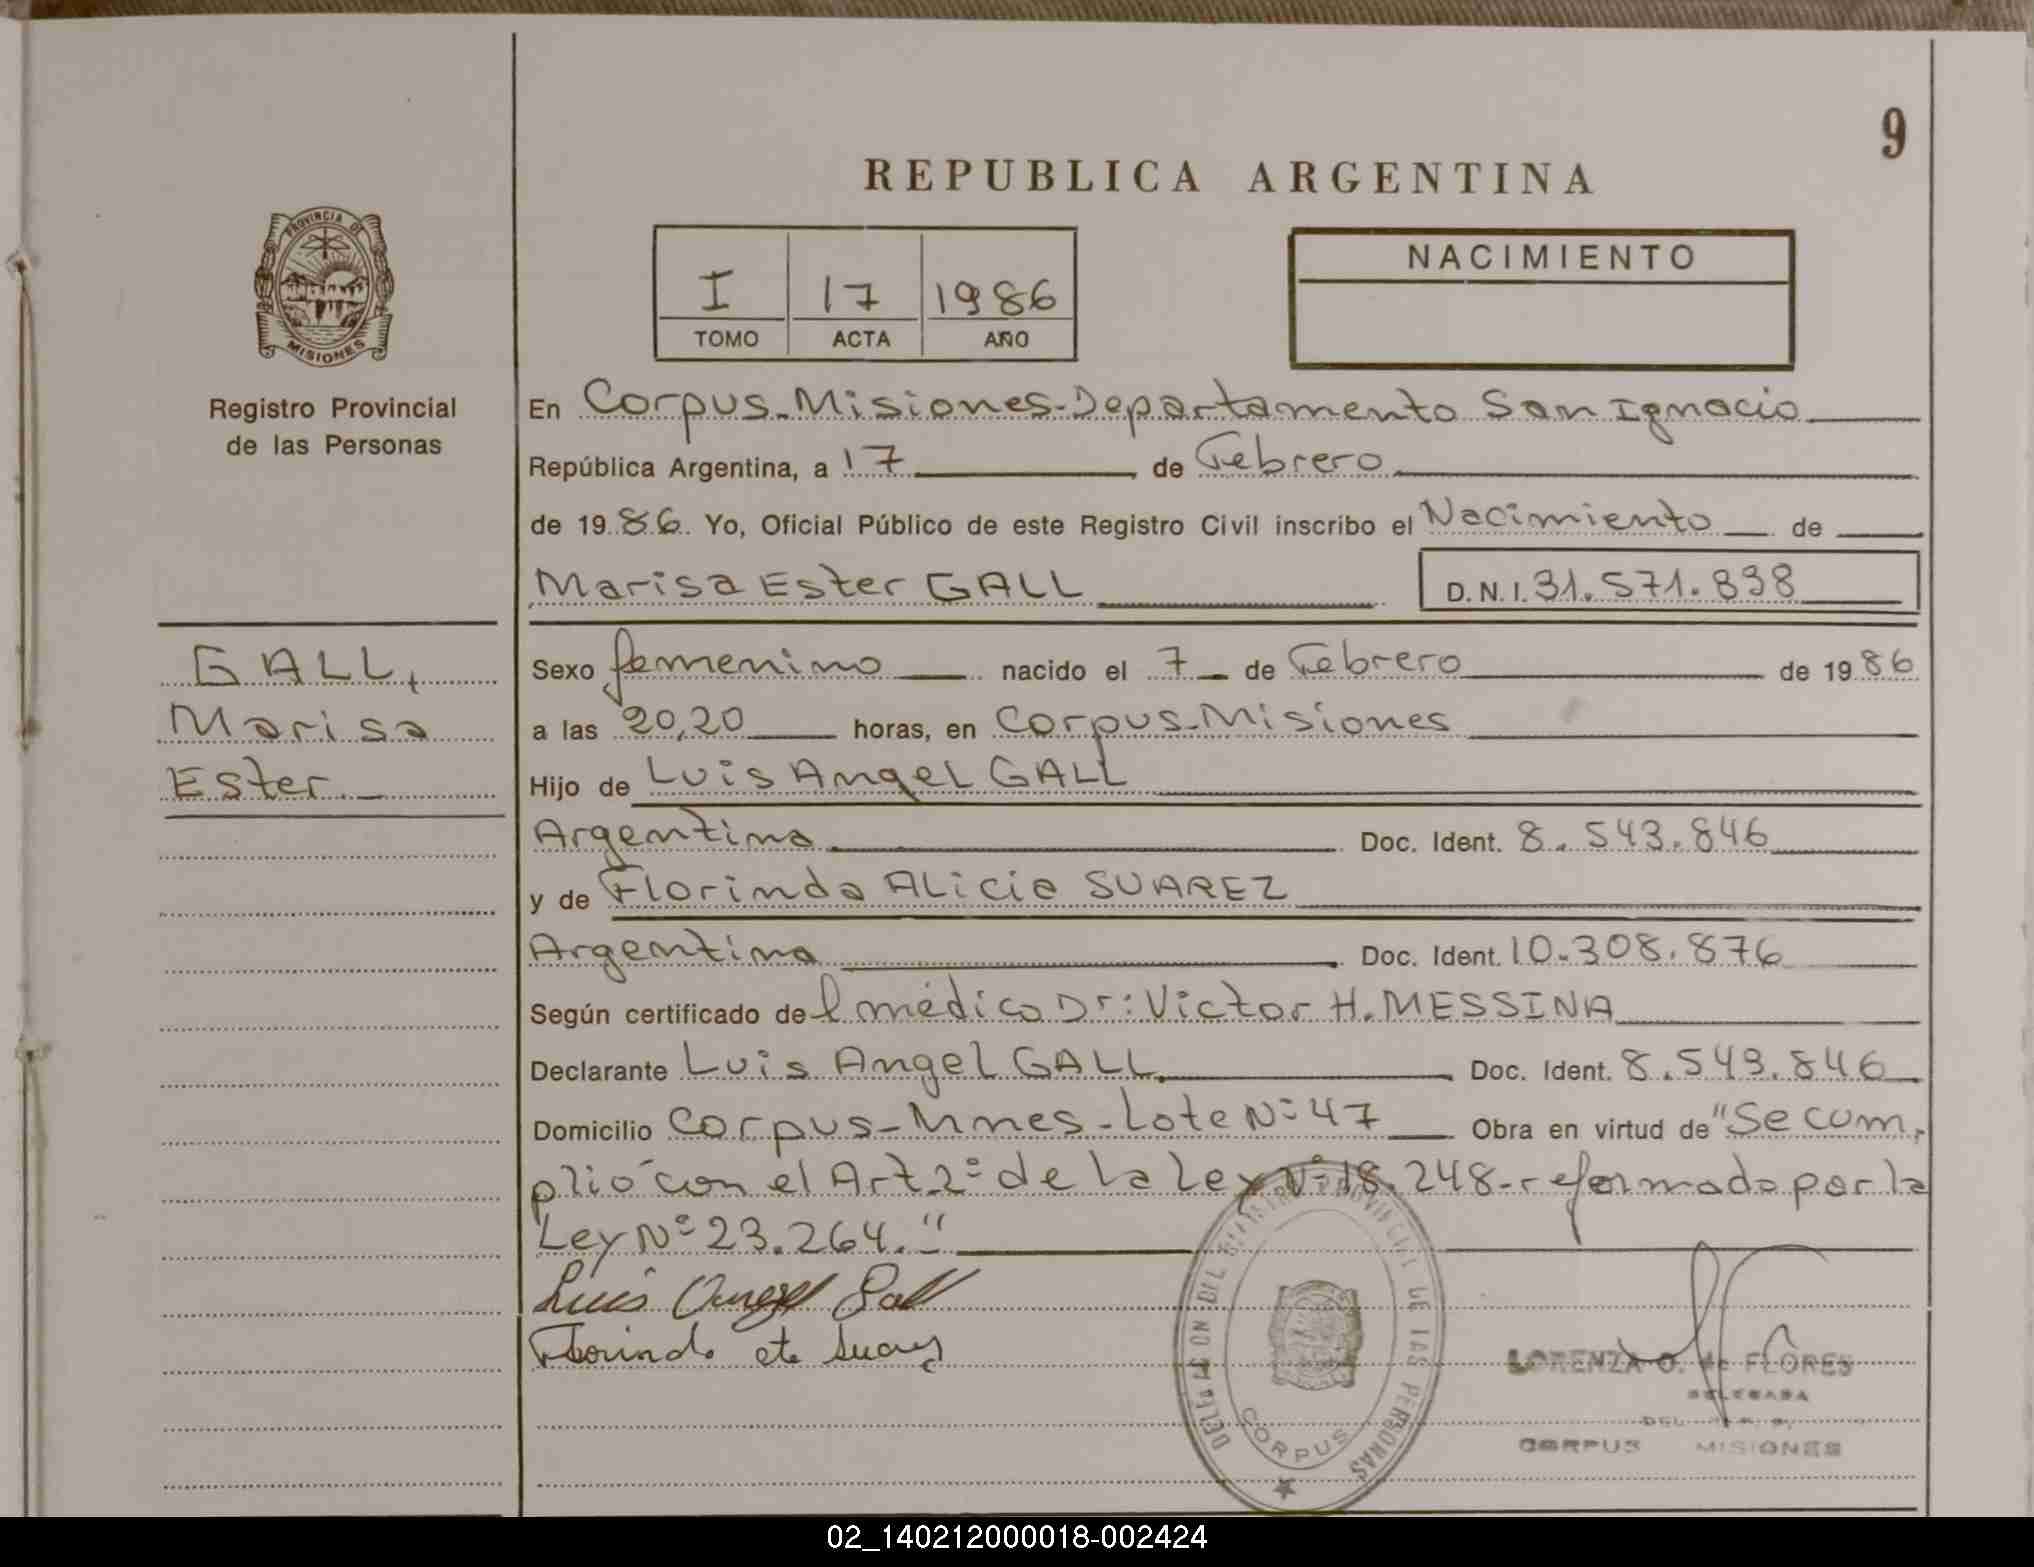 9
REPUBLICA ARGENTINA
PROVINCIA DE
MISIONES
Registro Provincial
de las Personas
I 17 1986
TOMO ACTA AÑO
NACIMIENTO
En Corpus-Misiones-Departamento San Ignacio
República Argentina, a 17 de Febrero
de 1986. Yo, Oficial Público de este Registro Civil inscribo el Nacimiento de
Marisa Ester GALL D.N.I. 31.571.838
GALL,
Marisa
Ester
Sexo femenino nacido el 7 de Febrero de 1986
a las 20,20 horas, en Corpus-Misiones
Hijo de Luis Angel GALL
Argentino Doc. Ident. 8.543.846
y de Florinda Alicia SUAREZ
Argentina Doc. Ident. 10.308.876
Según certificado del médico Dr: Victor H. MESSINA
Declarante Luis Angel GALL Doc. Ident. 8.543.846
Domicilio Corpus-Mnes-Lote Nº 47 Obra en virtud de "Se cum-
plió con el Art. 2º de la Ley Nº 18.248-reformado por la
Ley Nº 23.264."
Luis Angel Gall
Florinda
DELEGACION DEL REGISTRO PROVINCIAL DE LAS PERSONAS
CORPUS
LORENZA O. de FLORES
DELEGADA
DEL
CORPUS MISIONES
02_140212000018-002424